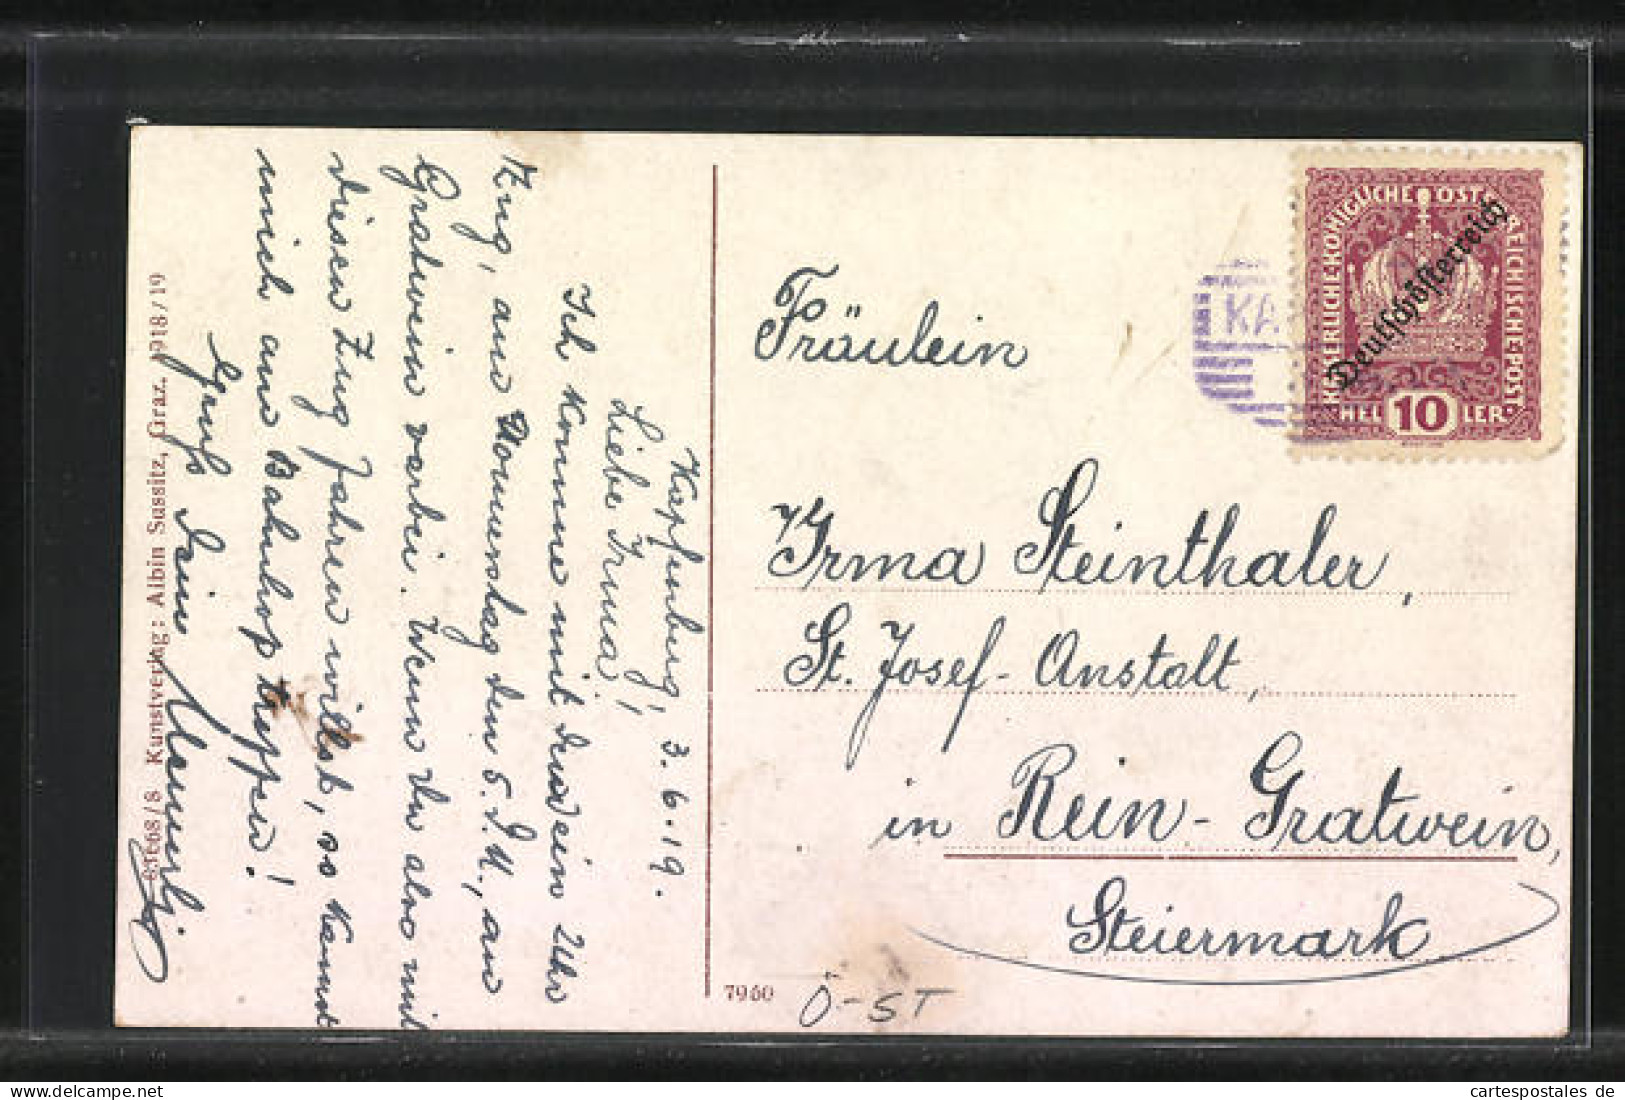 Kapfenberg, 3.6.19.
Liebe Irma!
Ich komme mit dem ein 2 Uhr
Zug, am Donnerstag den 5. d. M., an
Gratwein vorbei. Wenn Du also mit
diesen Zug fahren willst, so kannst
mich am Bahnhof treffen!
Gruß Deine
6.1668/8 Kunstverlag: Albin Sussitz, Graz. 1918/19
Fräulein
Irma Steinthaler,
St. Josef-Anstalt,
in Rein-Gratwein,
Steiermark
7960
Ö-ST
KAISERLICHE KÖNIGLICHE ÖSTERREICHISCHE POST
Deutschösterreich
HELLER 10
KA
cartespostales de